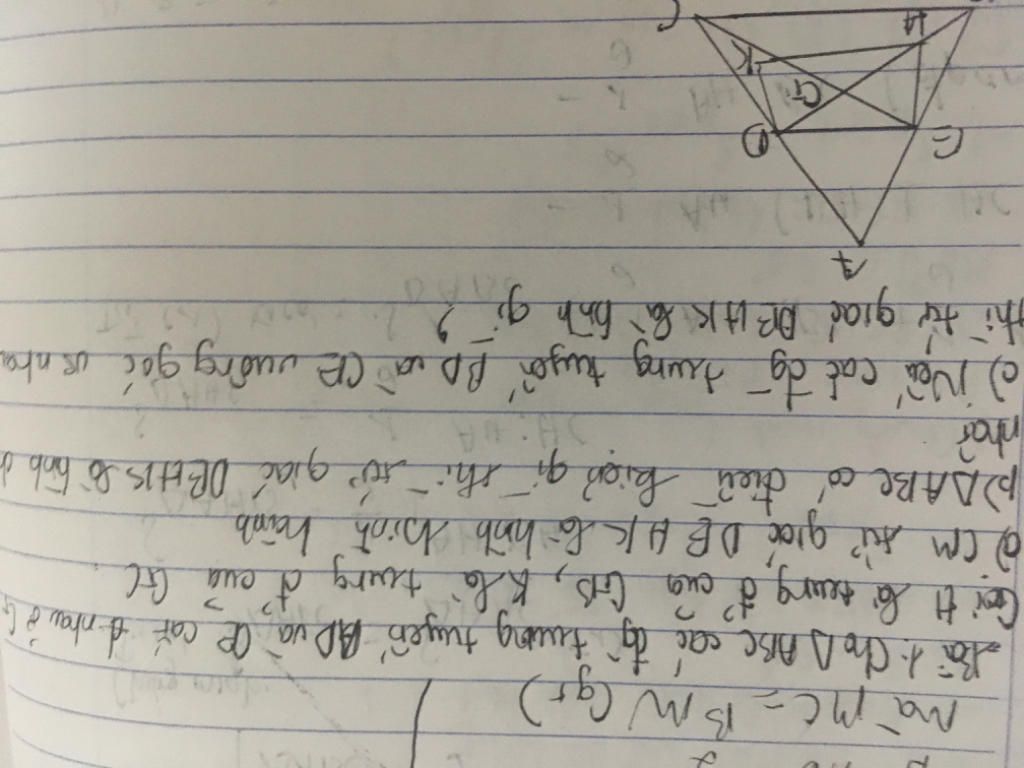 mà MC = BM (gt)
Bài 1: Cho ΔABC các đg trung tuyến BD và CE cắt nhau ở G
Gọi H là trung đ' của GB, K là trung đ' của GC
a) CM tứ giác DEHK là hình bình hành
b) ΔABC có điều kiện gì thì tứ giác DEHK là hình
nhật
c) Nếu các đg trung tuyến BD và CE vuông góc vs nha
thì tứ giác DEHK là hình gì?
A
D E
G
K H
C